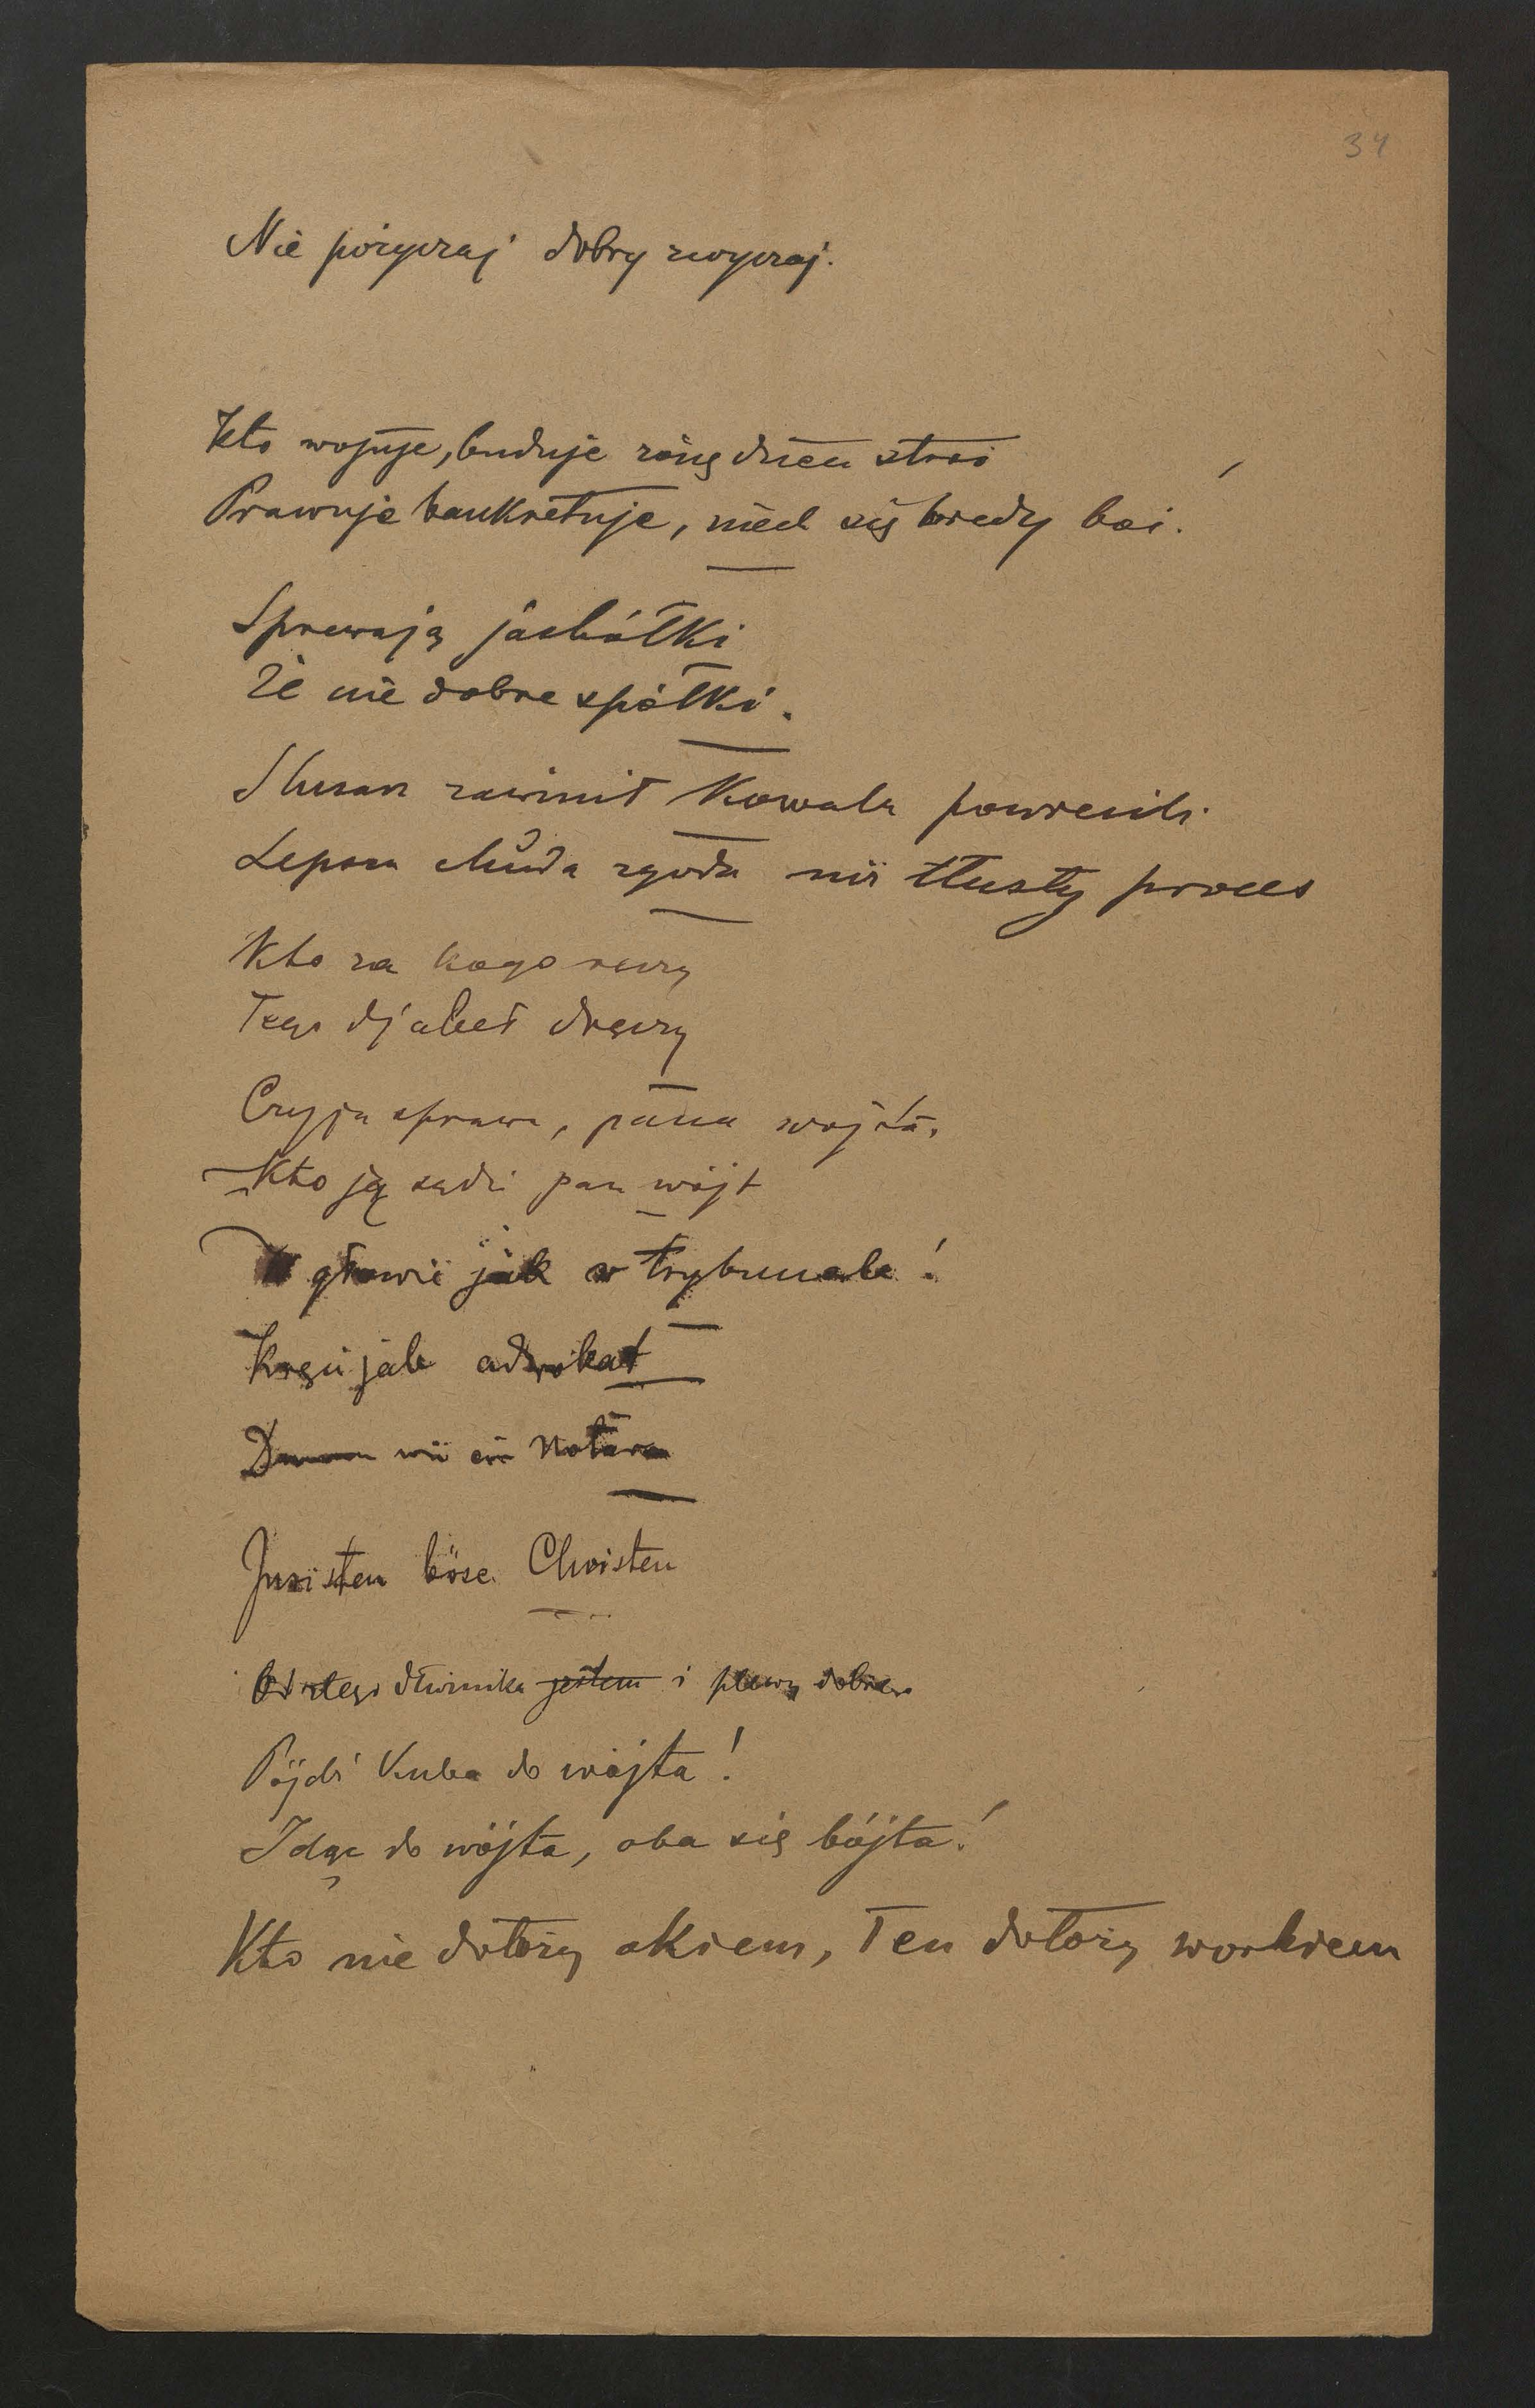 34
Nie pożyczaj dobry zwyczaj.
Kto wojuje, buduje żonę dzieci stroi
Prawuje bankretuje, niech się biedy boi.
Śpiewają jaskółki
Że nie dobre spółki.
Ślusarz zawinił Kowala powiesili.
Lepsza chuda zgoda niż tłusty proces
Kto za kogo ręczy
Tego djabeł dręczy
Czyja sprawa, pana wójta.
Kto ją sądzi pan wójt
W głowie jak w trybunale!
Kręci jak adwokat
Dumm wie ein Notar
Juristen böse Christen
Od złego dłużnika jestem i plewy dobre.
Pójdź Kuba do wójta!
Idąc do wójta, oba się bójta!
Kto nie dołoży okiem, Ten dołoży workiem